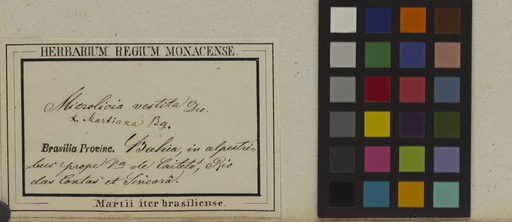 HERBARIUM REGIUM MONACENSE.
Microlicia vestita DC.
α Martiana Bg.
Brasilia Provinc. Bahia, in alpestri-
bus prope Va de Caiteté, Rio
das Contas et Sincorá.
Martii iter brasiliense.